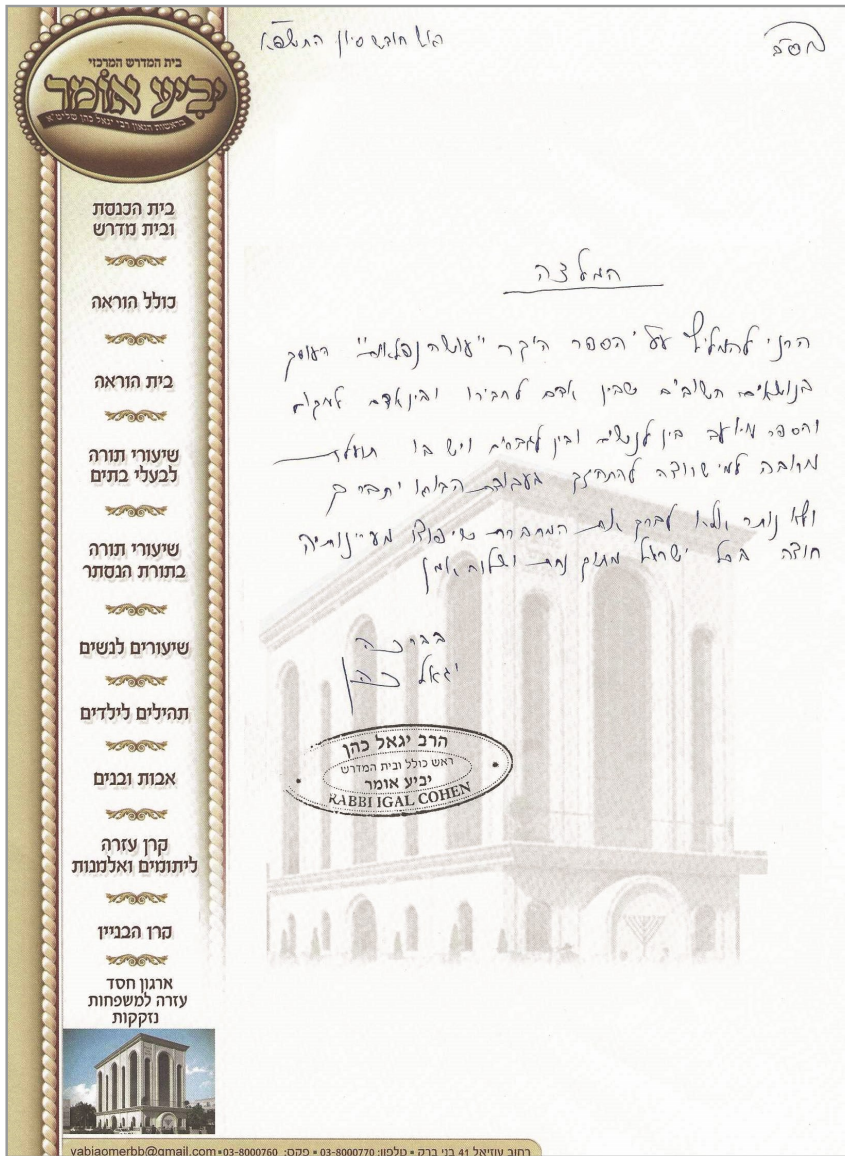 בס"ד
ראש חודש סיון התשפ"א
בית המדרש המרכזי
יביע אומר
בראשות הגאון רבי יגאל כהן שליט"א
בית הכנסת
ובית מדרש
כולל הוראה
בית הוראה
שיעורי תורה
לבעלי בתים
שיעורי תורה
בתורת הנסתר
שיעורים לנשים
תהילים לילדים
אבות ובנים
קרן עזרה
ליתומים ואלמנות
קרן הבניין
ארגון חסד
עזרה למשפחות
נזקקות
המלצה
הרני להמליץ על הספר היקר "עושה נפלאות" העוסק
בנושאים חשובים שבין אדם לחבירו ובין אדם למקום
והספר מיועד בין לנשים ובין לגברים ויש בו תועלת
מרובה למי שרוצה להתחזק בעבודת הבורא יתברך
ולא נותר אלא לברך את המחברת שיפוצו מעיינותיה
חוצה בכל ישראל מתוך נחת ושלוה אמן
בברכה
יגאל כהן
הרב יגאל כהן
ראש כולל ובית המדרש
יביע אומר
RABBI IGAL COHEN
רחוב עוזיאל 41 בני ברק • טלפון: 03-8000770 • פקס: 03-8000760 • yabiaomerbb@gmail.com